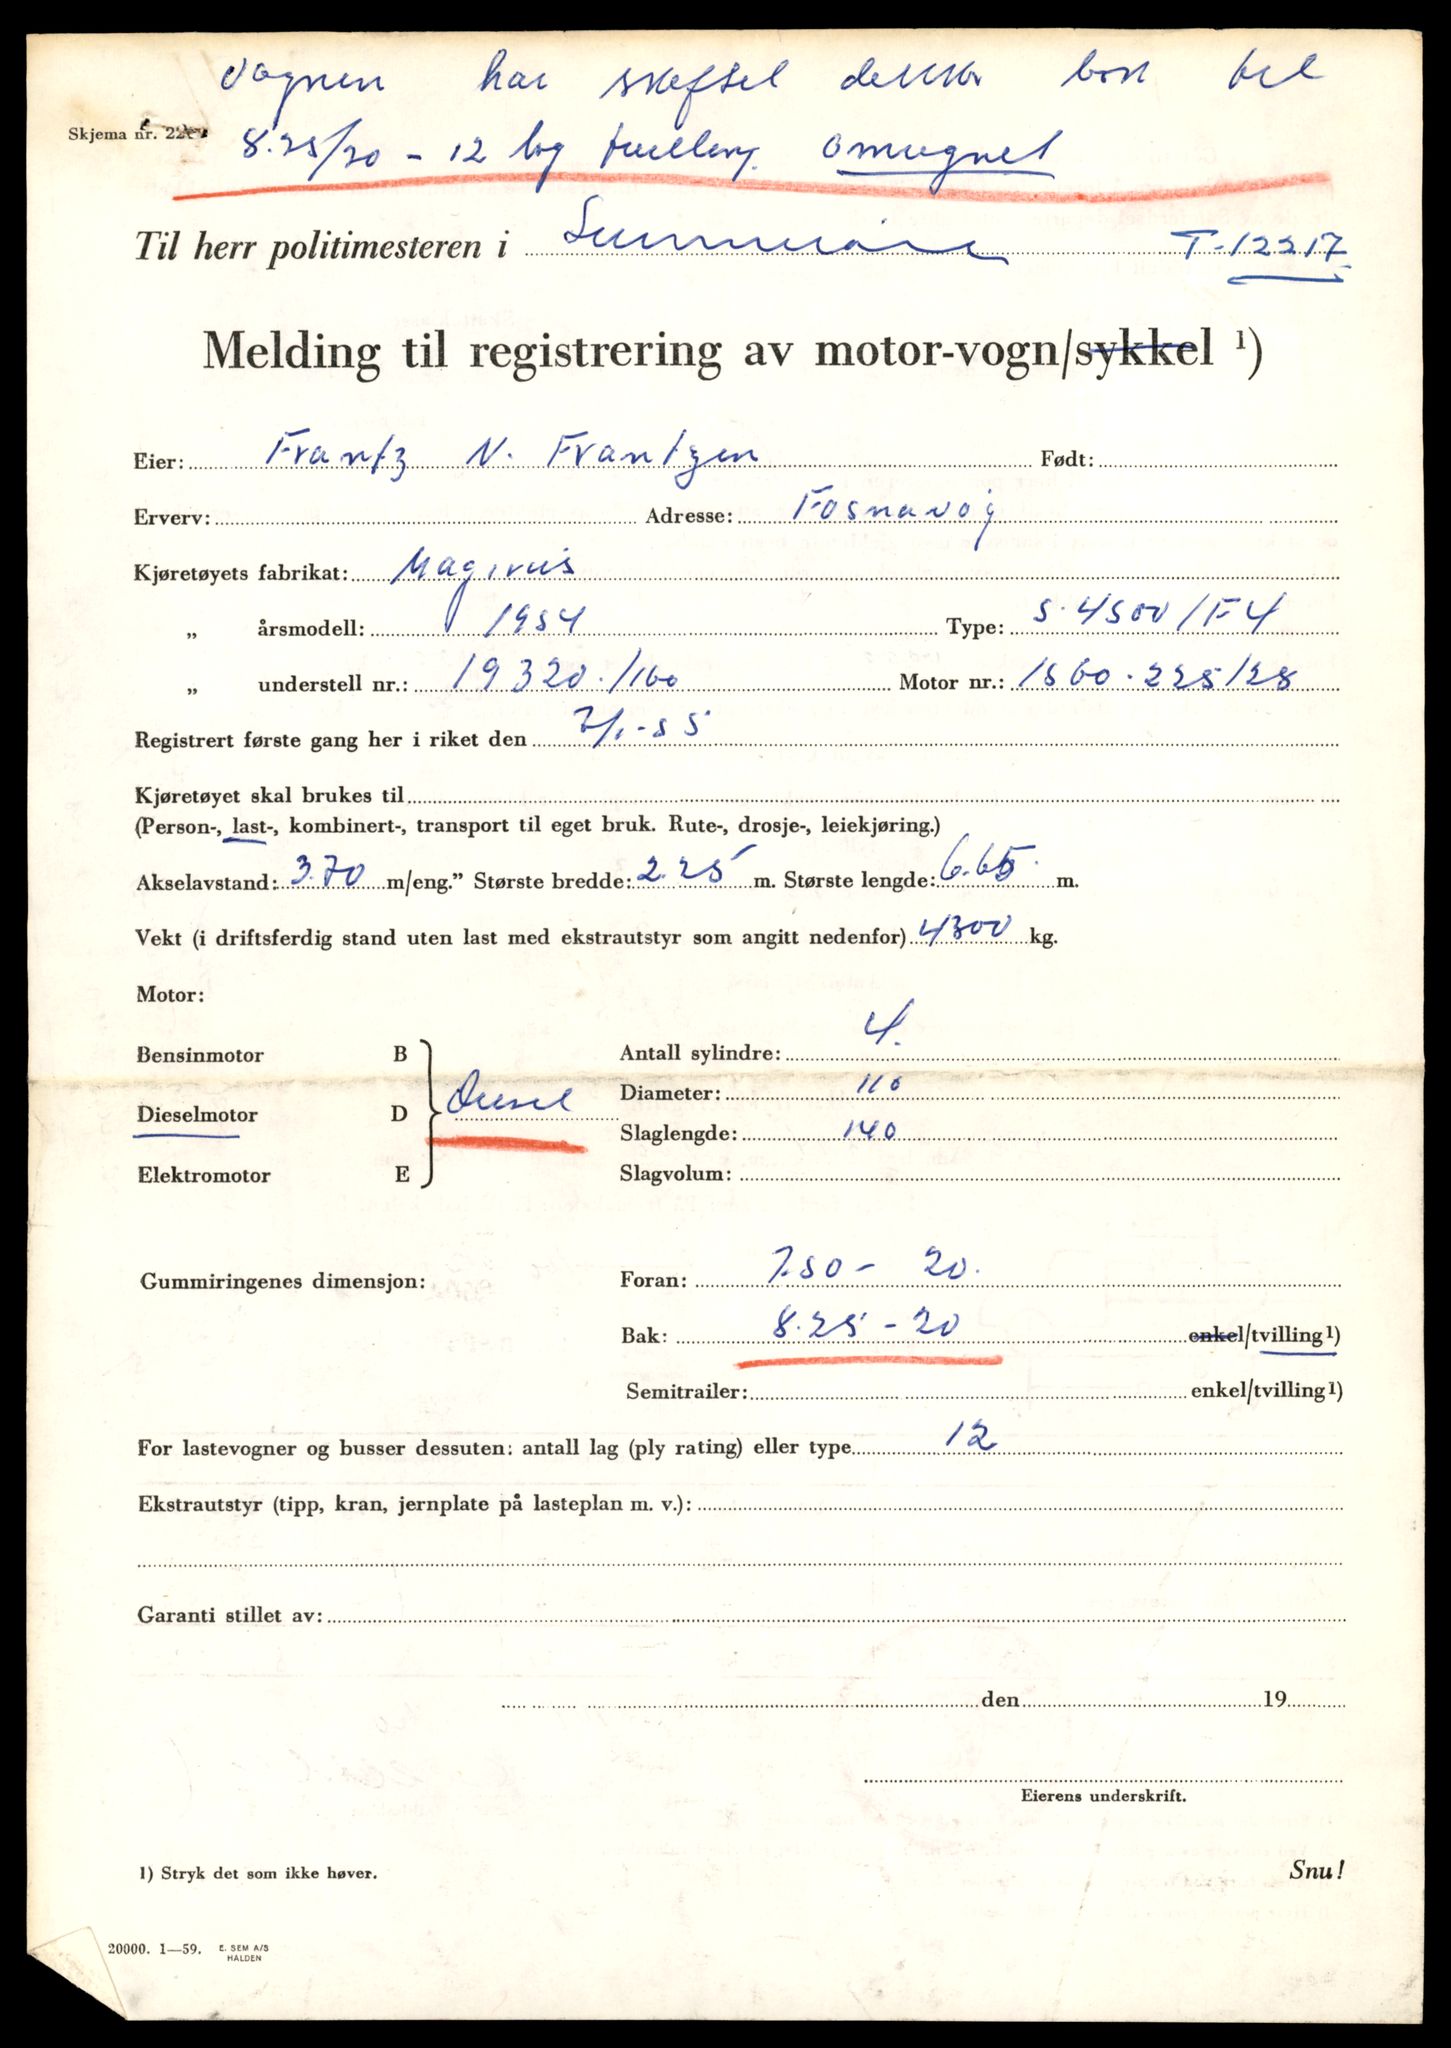 Vognen har skiftet dekk bak til
Skjema nr. 22
8.25/20 - 12 lag tvilling. omregnet
Til herr politimesteren i Sunnmøre T-12217
Melding til registrering av motor-vogn/sykkel ¹)
Eier: Frantz N. Frantzen Født:
Erverv: Adresse: Fosnavåg
Kjøretøyets fabrikat: Magirus
„ årsmodell: 1954 Type: S.4500/F4
„ understell nr.: 19320./160 Motor nr.: 1560.225/28
Registrert første gang her i riket den 7/1-55
Kjøretøyet skal brukes til
(Person-, last-, kombinert-, transport til eget bruk. Rute-, drosje-, leiekjøring.)
Akselavstand: 3.70 m/eng.” Største bredde: 2.25 m. Største lengde: 6.65. m.
Vekt (i driftsferdig stand uten last med ekstrautstyr som angitt nedenfor) 4300 kg.
Motor:
Bensinmotor B Antall sylindre: 4.
Diameter: 110
Dieselmotor D Diesel
Slaglengde: 140
Elektromotor E Slagvolum:
Gummiringenes dimensjon: Foran: 7.50 - 20.
Bak: 8.25 - 20 enkel/tvilling¹)
Semitrailer: enkel/tvilling¹)
For lastevogner og busser dessuten: antall lag (ply rating) eller type 12
Ekstrautstyr (tipp, kran, jernplate på lasteplan m. v.):
Garanti stillet av:
den 19
Eierens underskrift.
1) Stryk det som ikke høver. Snu!
20000. 1—59. E. SEM A/S
HALDEN